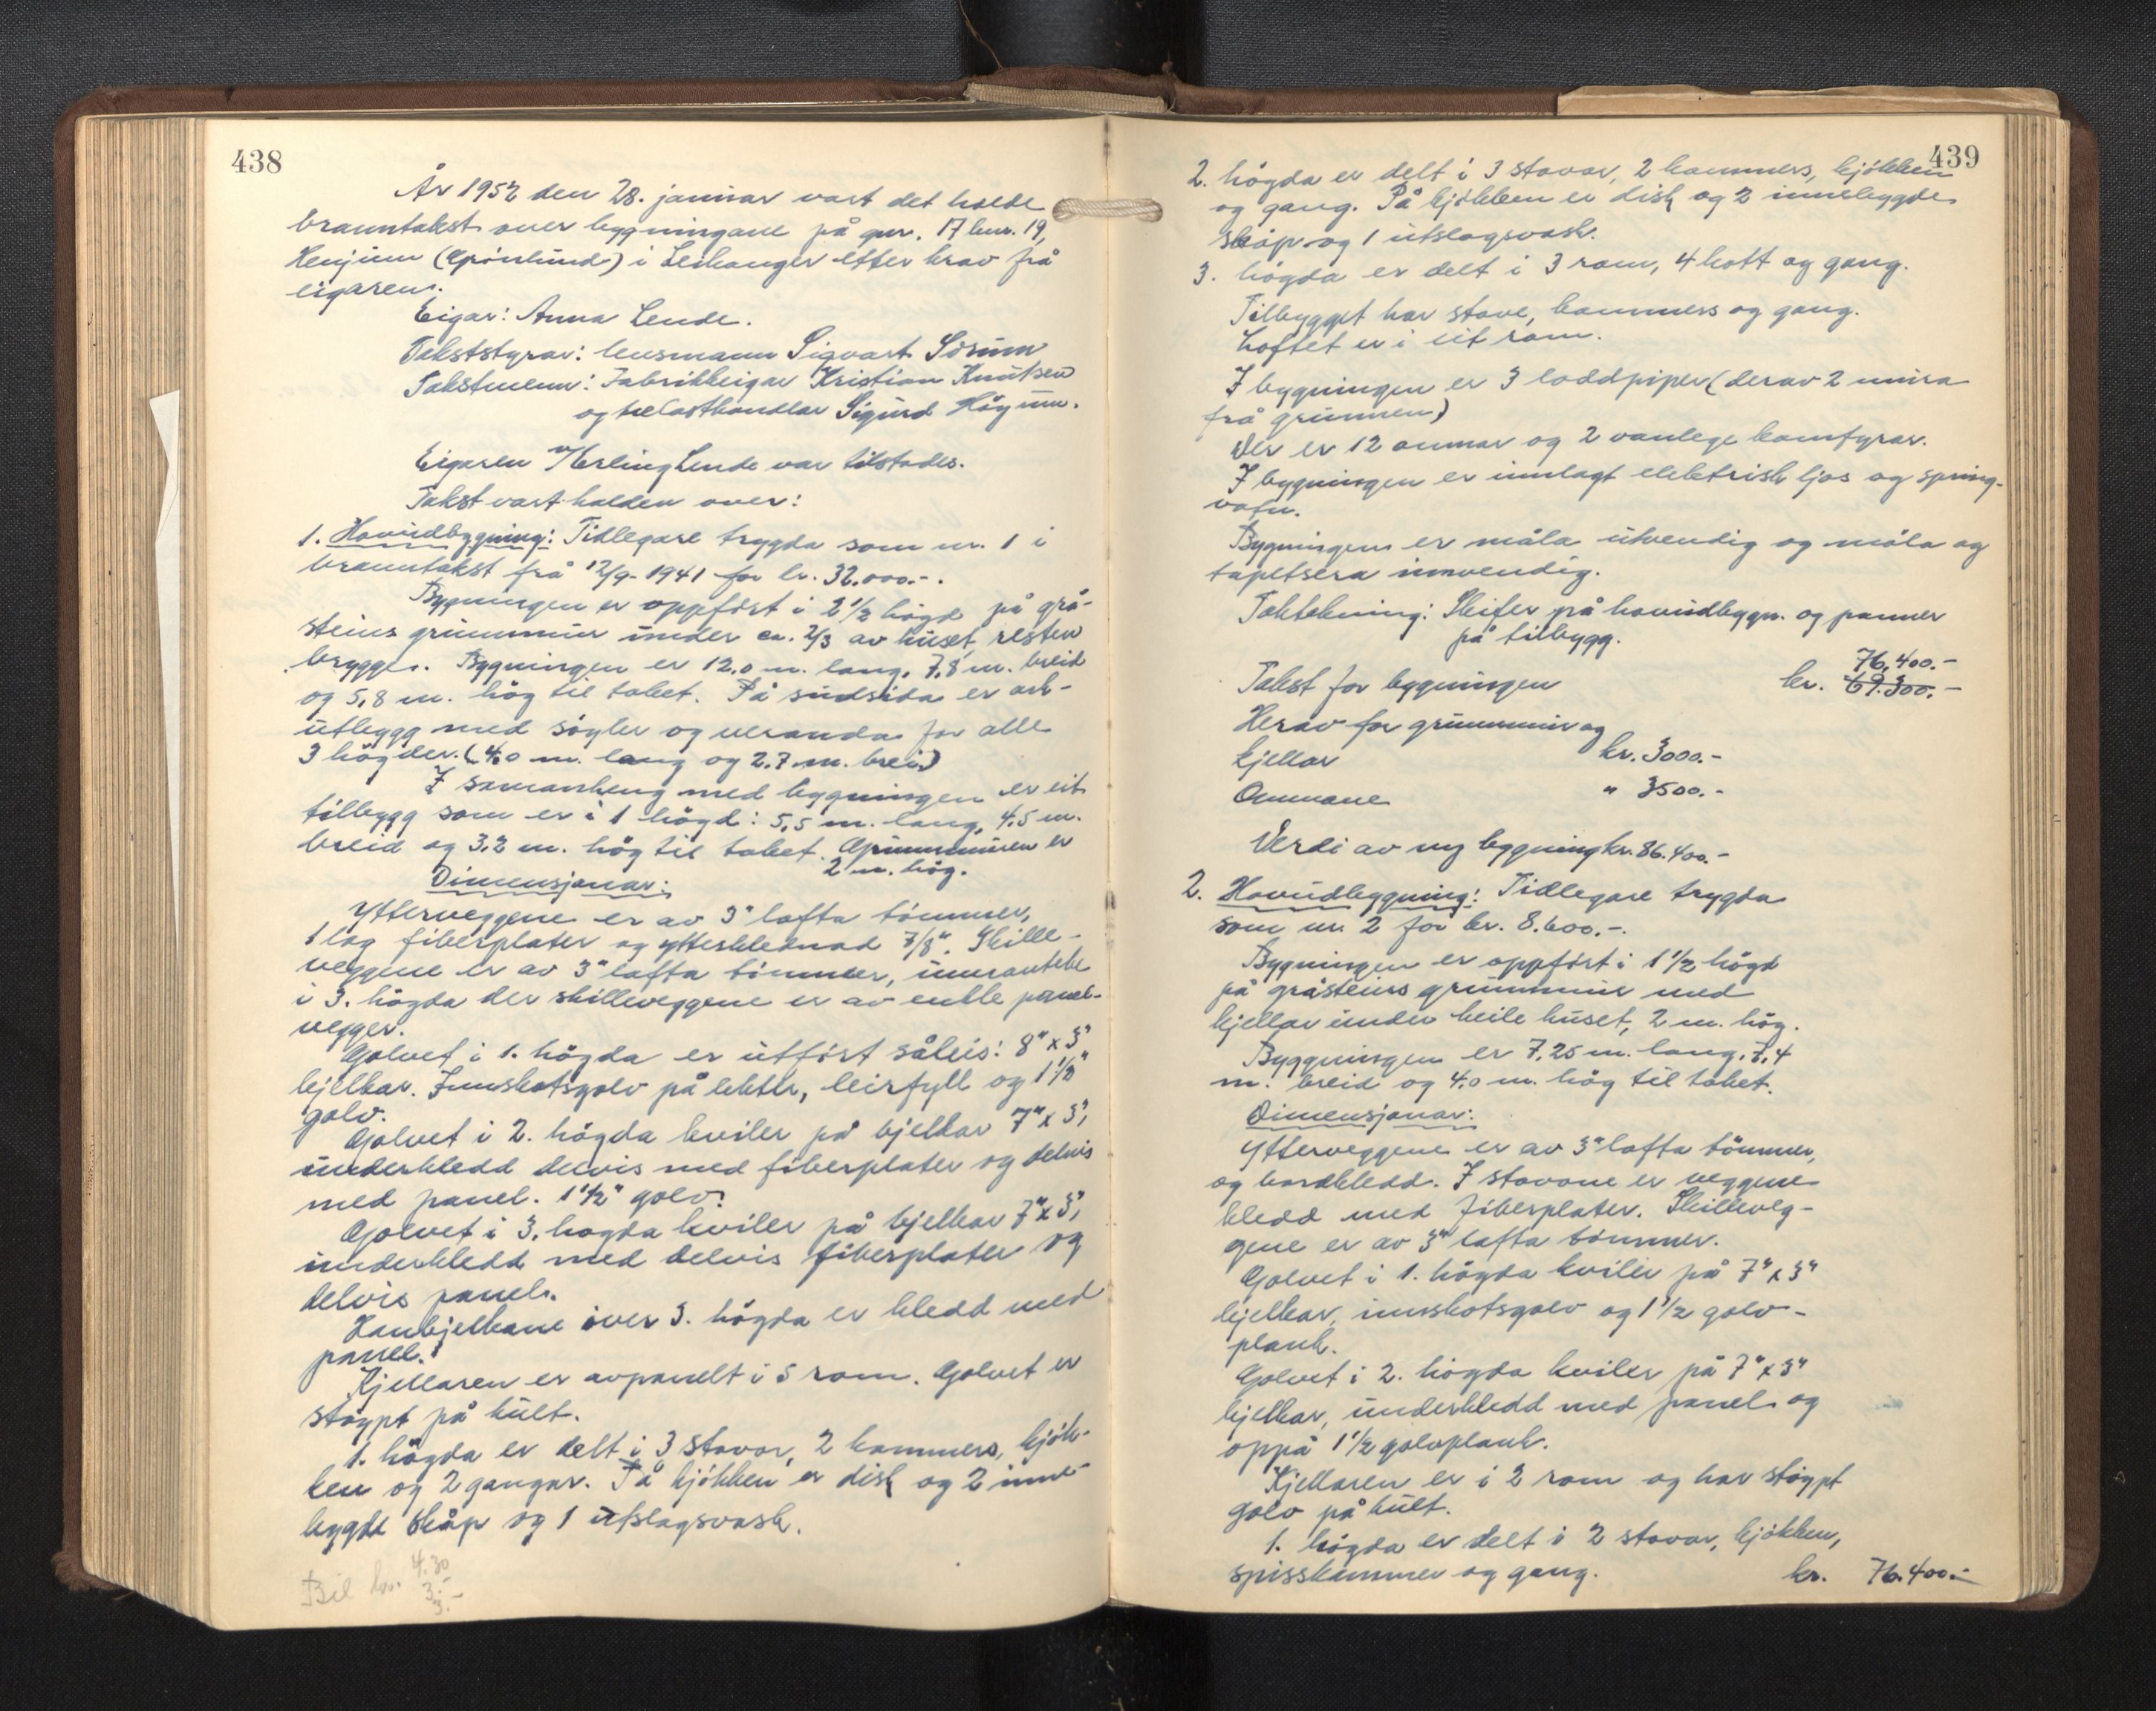 438
År 1952 den 28. januar vart det halde
branntakst over bygningane på gnr. 17 bnr. 19,
Henjum (Grönlund) i Leikanger etter krav frå
eigaren.
Eigar: Anna Lende.
Takststyrar: lensmann Sigvart Sörum
Takstmenn: Fabrikkeigar Kristian Knutsen
og trelasthandlar Sigurd Högum.
Eigaren v/Erling Lende var tilstades.
Takst vart halden over:
1. Hovudbygning: Tidlegare trygda som nr. 1 i
branntakst frå 12/9-1941 for kr. 32.000.-.
Bygningen er oppfört i 2 1/2 högd på grå-
steins grunnmur under ca. 2/3 av huset, resten
brygge. Bygningen er 12,0 m. lang, 7,8 m. breid
og 5,8 m. hög til taket. På sudsida er ark-
utbygg med söyler og veranda for alle
3 högder. (4,0 m. lang og 2,7 m. brei)
I samanheng med bygningen er eit
tilbygg som er i 1 högd: 5,5 m. lang, 4,5 m.
breid og 3,2 m. hög til taket. Grunnmuren er
2 m. hög.
Dimensjonar:
Ytterveggene er av 3" lafta tömmer,
1 lag fiberplater og ytterklednad 7/8". Skille-
veggene er av 3" lafta tömmer, unnanteke
i 3. högda der skilleveggene er av enkle panel-
vegger.
Golvet i 1. högda er utfört såleis: 8" x 3"
bjelkar. Innskotsgolv på lekter, leirfyll og 1 1/2"
golv.
Golvet i 2. högda kviler på bjelkar 7" x 3",
underkledd delvis med fiberplater og delvis
med panel. 1 1/2" golv.
Golvet i 3. högda kviler på bjelkar 7" x 3",
underkledd med delvis fiberplater og
delvis panel.
Hanbjelkane över 3. högda er kledd med
panel.
Kjellaren er avpanelt i 5 rom. Golvet er
stöypt på kult.
1. högda er delt i 3 stovor, 2 kammers, kjök-
ken og 2 gangar. På kjökken er disk og 2 inne-
bygde skåp og 1 utslagsvask.
Bil kr. 4.30
3.-
3.-
439
2. högda er delt i 3 stovor, 2 kammers, kjökken
og gang. På kjökken er disk og 2 innebygde
skåp og 1 utslagsvask.
3. högda er delt i 3 rom, 4 kott og gang.
Tilbygget har stove, kammers og gang.
Loftet er i eit rom.
I bygningen er 3 loddpiper (derav 2 mura
frå grunnen)
Der er 12 omnar og 2 vanlege komfyrar.
I bygningen er innlagt elektrisk ljos og spring-
vatn.
Bygningen er måla utvendig og måla og
tapetsera innvendig.
Taktekning: Skifer på hovudbygn. og panner
på tilbygg.
76.400.-
Takst for bygningen kr. 69.300.-
Herav for grunnmur og
kjellar kr. 3000.-
Omnane " 3500.-
Verdi av ny bygning kr. 86.400.-
2. Hovudbygning: Tidlegare trygda
som nr. 2 for kr. 8.600.-.
Bygningen er oppfört i 1 1/2 högd
på gråsteins grunnmur med
kjellar under heile huset, 2 m. hög.
Byggningen er 7,25 m. lang, 7,4
m. breid og 4,0 m. hög til taket.
Dimensjonar:
Ytterveggene er av 3" lafta tömmer,
og bordkledd. I stovone er veggene
kledd med fiberplater. Skilleveg-
gene er av 3" lafta tömmer.
Golvet i 1. högda kviler på 7" x 3"
bjelkar, innskotsgolv og 1 1/2 golv-
plank.
Golvet i 2. högda kviler på 7" x 3"
bjelkar, underkledd med panel og
oppå 1 1/2 golvplank.
Kjellaren er i 2 rom og har stöypt
golv på kult.
1. högda er delt i 2 stovor, kjökken,
spisskammer og gang. kr. 76.400.-